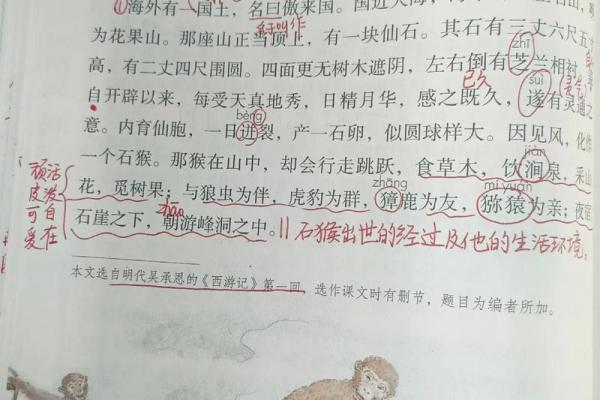 ①海外有一国土，名曰傲来国。国近大海，
名字叫作
为花果山。那座山正当顶上，有一块仙石。其石有三丈六尺五
zhī
高，有二丈四尺围圆。四面更无树木遮阴，左右倒有芝兰相衬
已久
suì
(灵气)
自开辟以来，每受天真地秀，日精月华，感之既久，遂有灵通之
bèng
意。内育仙胞，一日迸裂，产一石卵，似圆球样大。因见风，化作
jiàn
一个石猴。那猴在山中，却会行走跳跃，食草木，饮涧泉，采山
zhāng
mí yuán
花，觅树果；与狼虫为伴，虎豹为群，獐鹿为友，猕猿为亲；夜宿
石崖之下，朝游峰洞之中。‖石猴出世的经过及他的生活环境。
顽皮可爱
活泼自在
本文选自明代吴承恩的《西游记》第一回，选作课文时有删节，题目为编者所加。